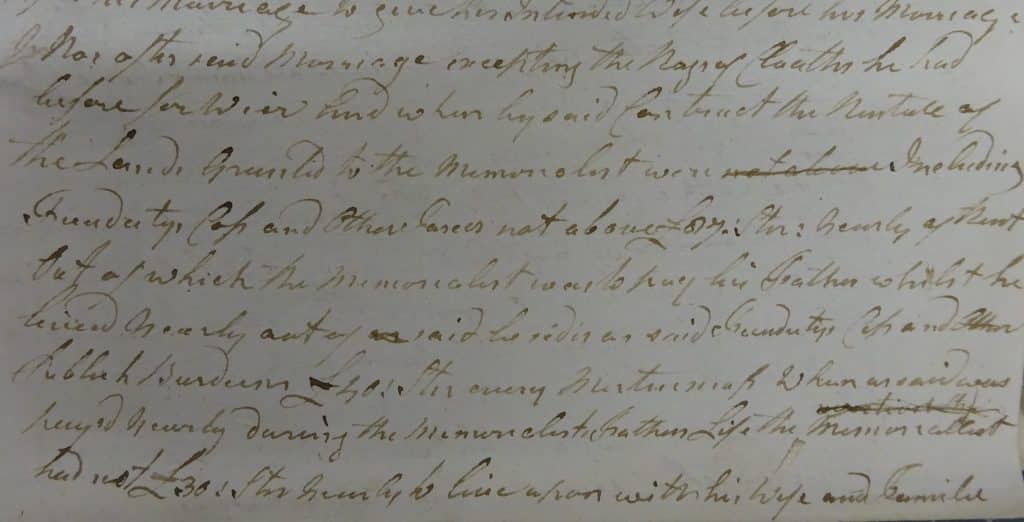 his Marriage to give his intended Wife before his Marriage
Nor after said Marriage excepting the Rags of Cloaths he had
before for Wier And when by said Contract the Nature of
the Lands Granted to the Memorialist were not above Including
Feuduty, Cess and Other Taxes not above £87: Ster: yearly of Rent
Out of which the Memorialist was to pay his Father whilst he
lived yearly out of said besides as said Feudutys Cess and Other
Publick Burdens £40: Ster every Martinmass When as said was
payd yearly during the Memorialists Fathers Life the Memoriallist
had not £30: Ster yearly to live upon with his Wife and Familie